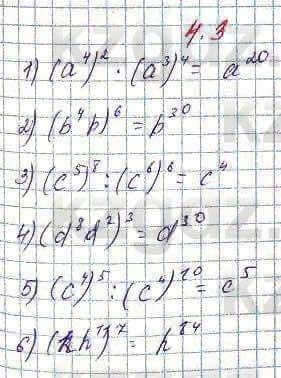 4.3
1) (a⁴)² · (a³)⁴ = a²⁰
2) (b⁴b)⁶ = b³⁰
3) (c⁵)⁸ : (c⁶)⁶ = c⁴
4) (d⁸d²)³ = d³⁰
5) (c⁴)⁵ : (c⁴)¹⁰ = c⁵
6) (kh¹¹)⁷ = h⁸⁴